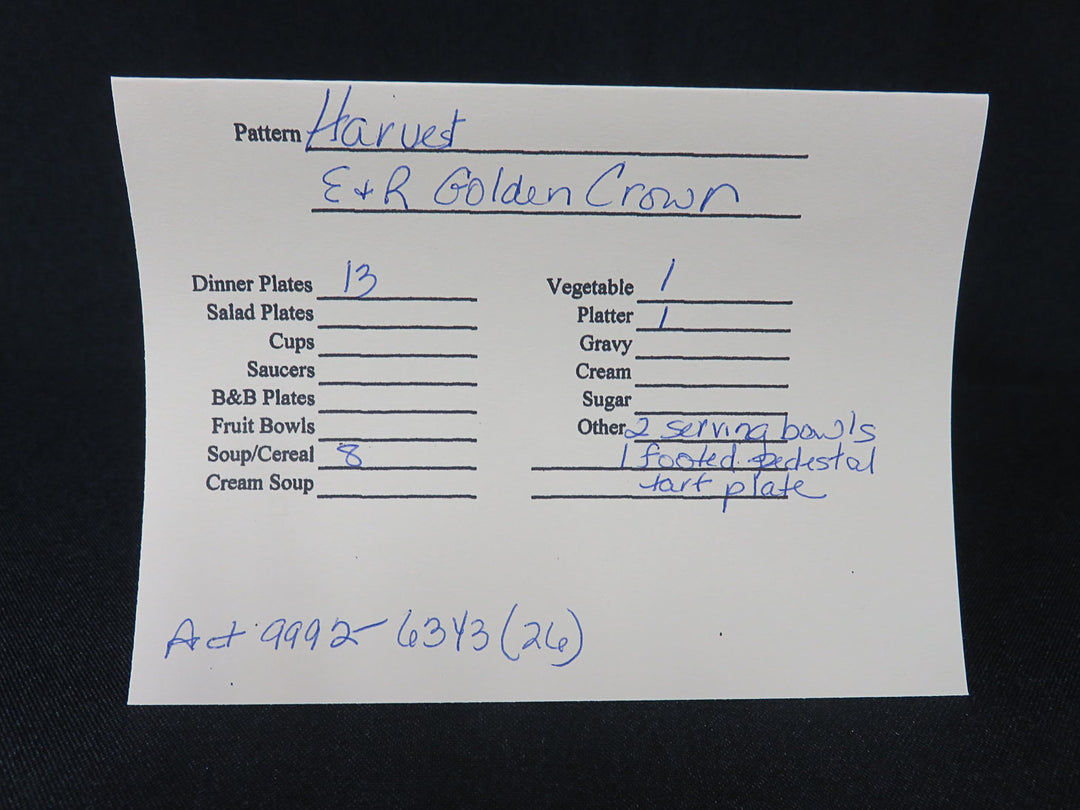 Pattern Harvest
E+R Golden Crown
Dinner Plates 13
Salad Plates
Cups
Saucers
B&B Plates
Fruit Bowls
Soup/Cereal 8
Cream Soup
Vegetable 1
Platter 1
Gravy
Cream
Sugar
Other 2 serving bowls
1 footed pedestal
tart plate
Act 9992-6343 (26)